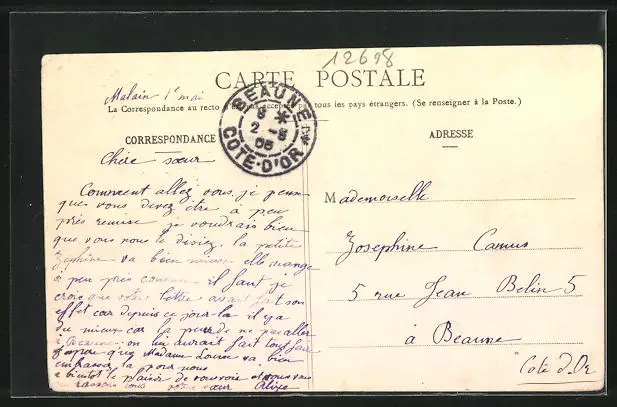 12698
CARTE POSTALE
Malain 1er mai
La Correspondance au recto n'est pas acceptée par tous les pays étrangers. (Se renseigner à la Poste.)
BEAUNE
8
2 -5
06
COTE-D'OR
CORRESPONDANCE
Chère sœur
Comment allez vous, je pense
que vous devez être à peu
près remise je voudrais bien
que vous nous le disiez. la petite
va bien mieux elle mange
à peu près comme il faut je
crois que votre lettre avait fait son
effet car depuis ce jour là il y a
du mieux car la peur de ne pas aller
à on lui aurait fait tout faire
J'espère que Madame Louise va bien
embrassez la pour nous
à bientôt le plaisir de vous voir et nous vous
embrassons tous votre sœur Alix
ADRESSE
Mademoiselle
Josephine Camus
5 rue Jean Belin 5
à Beaune
Cote d'Or